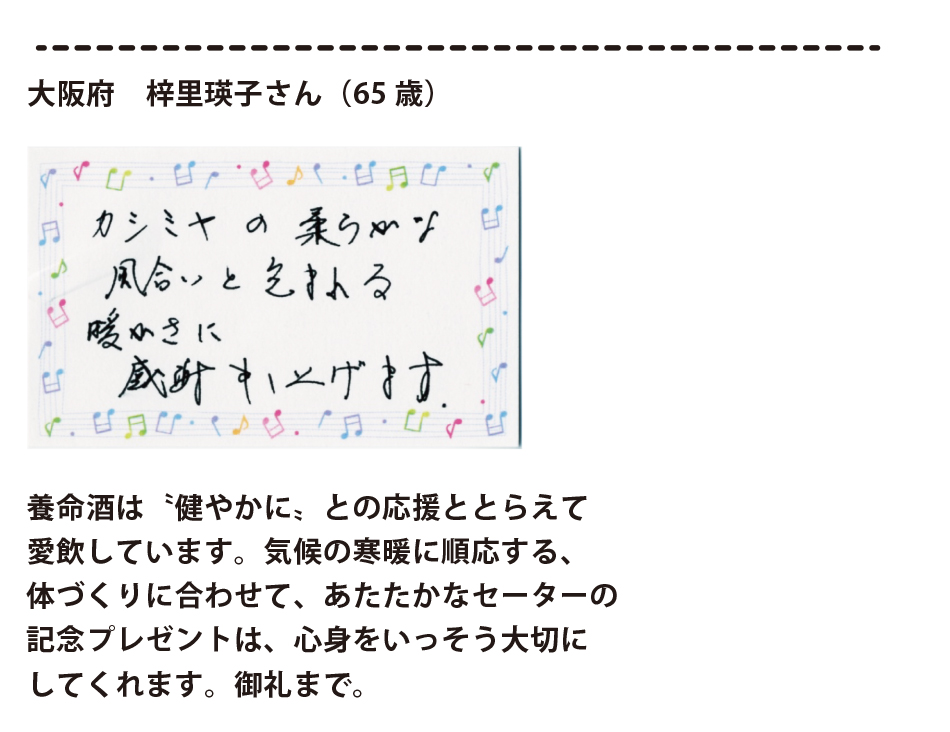 大阪府　梓里瑛子さん（65 歳）
カシミヤの柔らかな
風合いと包まれる
暖かさに
感謝申し上げます.
養命酒は〝健やかに〟との応援ととらえて
愛飲しています。気候の寒暖に順応する、
体づくりに合わせて、あたたかなセーターの
記念プレゼントは、心身をいっそう大切に
してくれます。御礼まで。